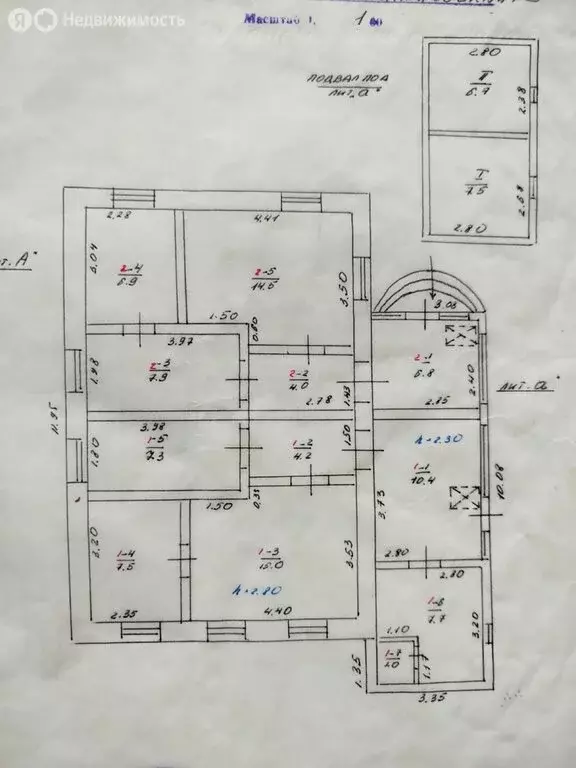 Я Недвижимость
Масштаб 1:100
ПОДВАЛ ПОД
ЛИТ. а"
2.80
II
6.7
2.38
I
7.5
2.68
2.80
т. А"
2.28
4.41
3.04
2-4
6.9
2-5
14.5
3.50
1.50
0.80
3.97
2-3
7.9
1.98
2-2
4.0
2.78
1.43
3.03
2-1
6.8
2.40
2.85
ЛИТ. а"
11.95
3.98
1-5
7.3
1.80
1-2
4.2
1.50
h=2.30
1-1
10.4
3.73
10.08
1.50
0.35
2.80
2.30
3.20
1-4
7.5
2.35
1-3
15.0
3.53
h=2.80
4.40
1-6
7.7
3.20
1.10
1-7
1.17
1.35
3.35